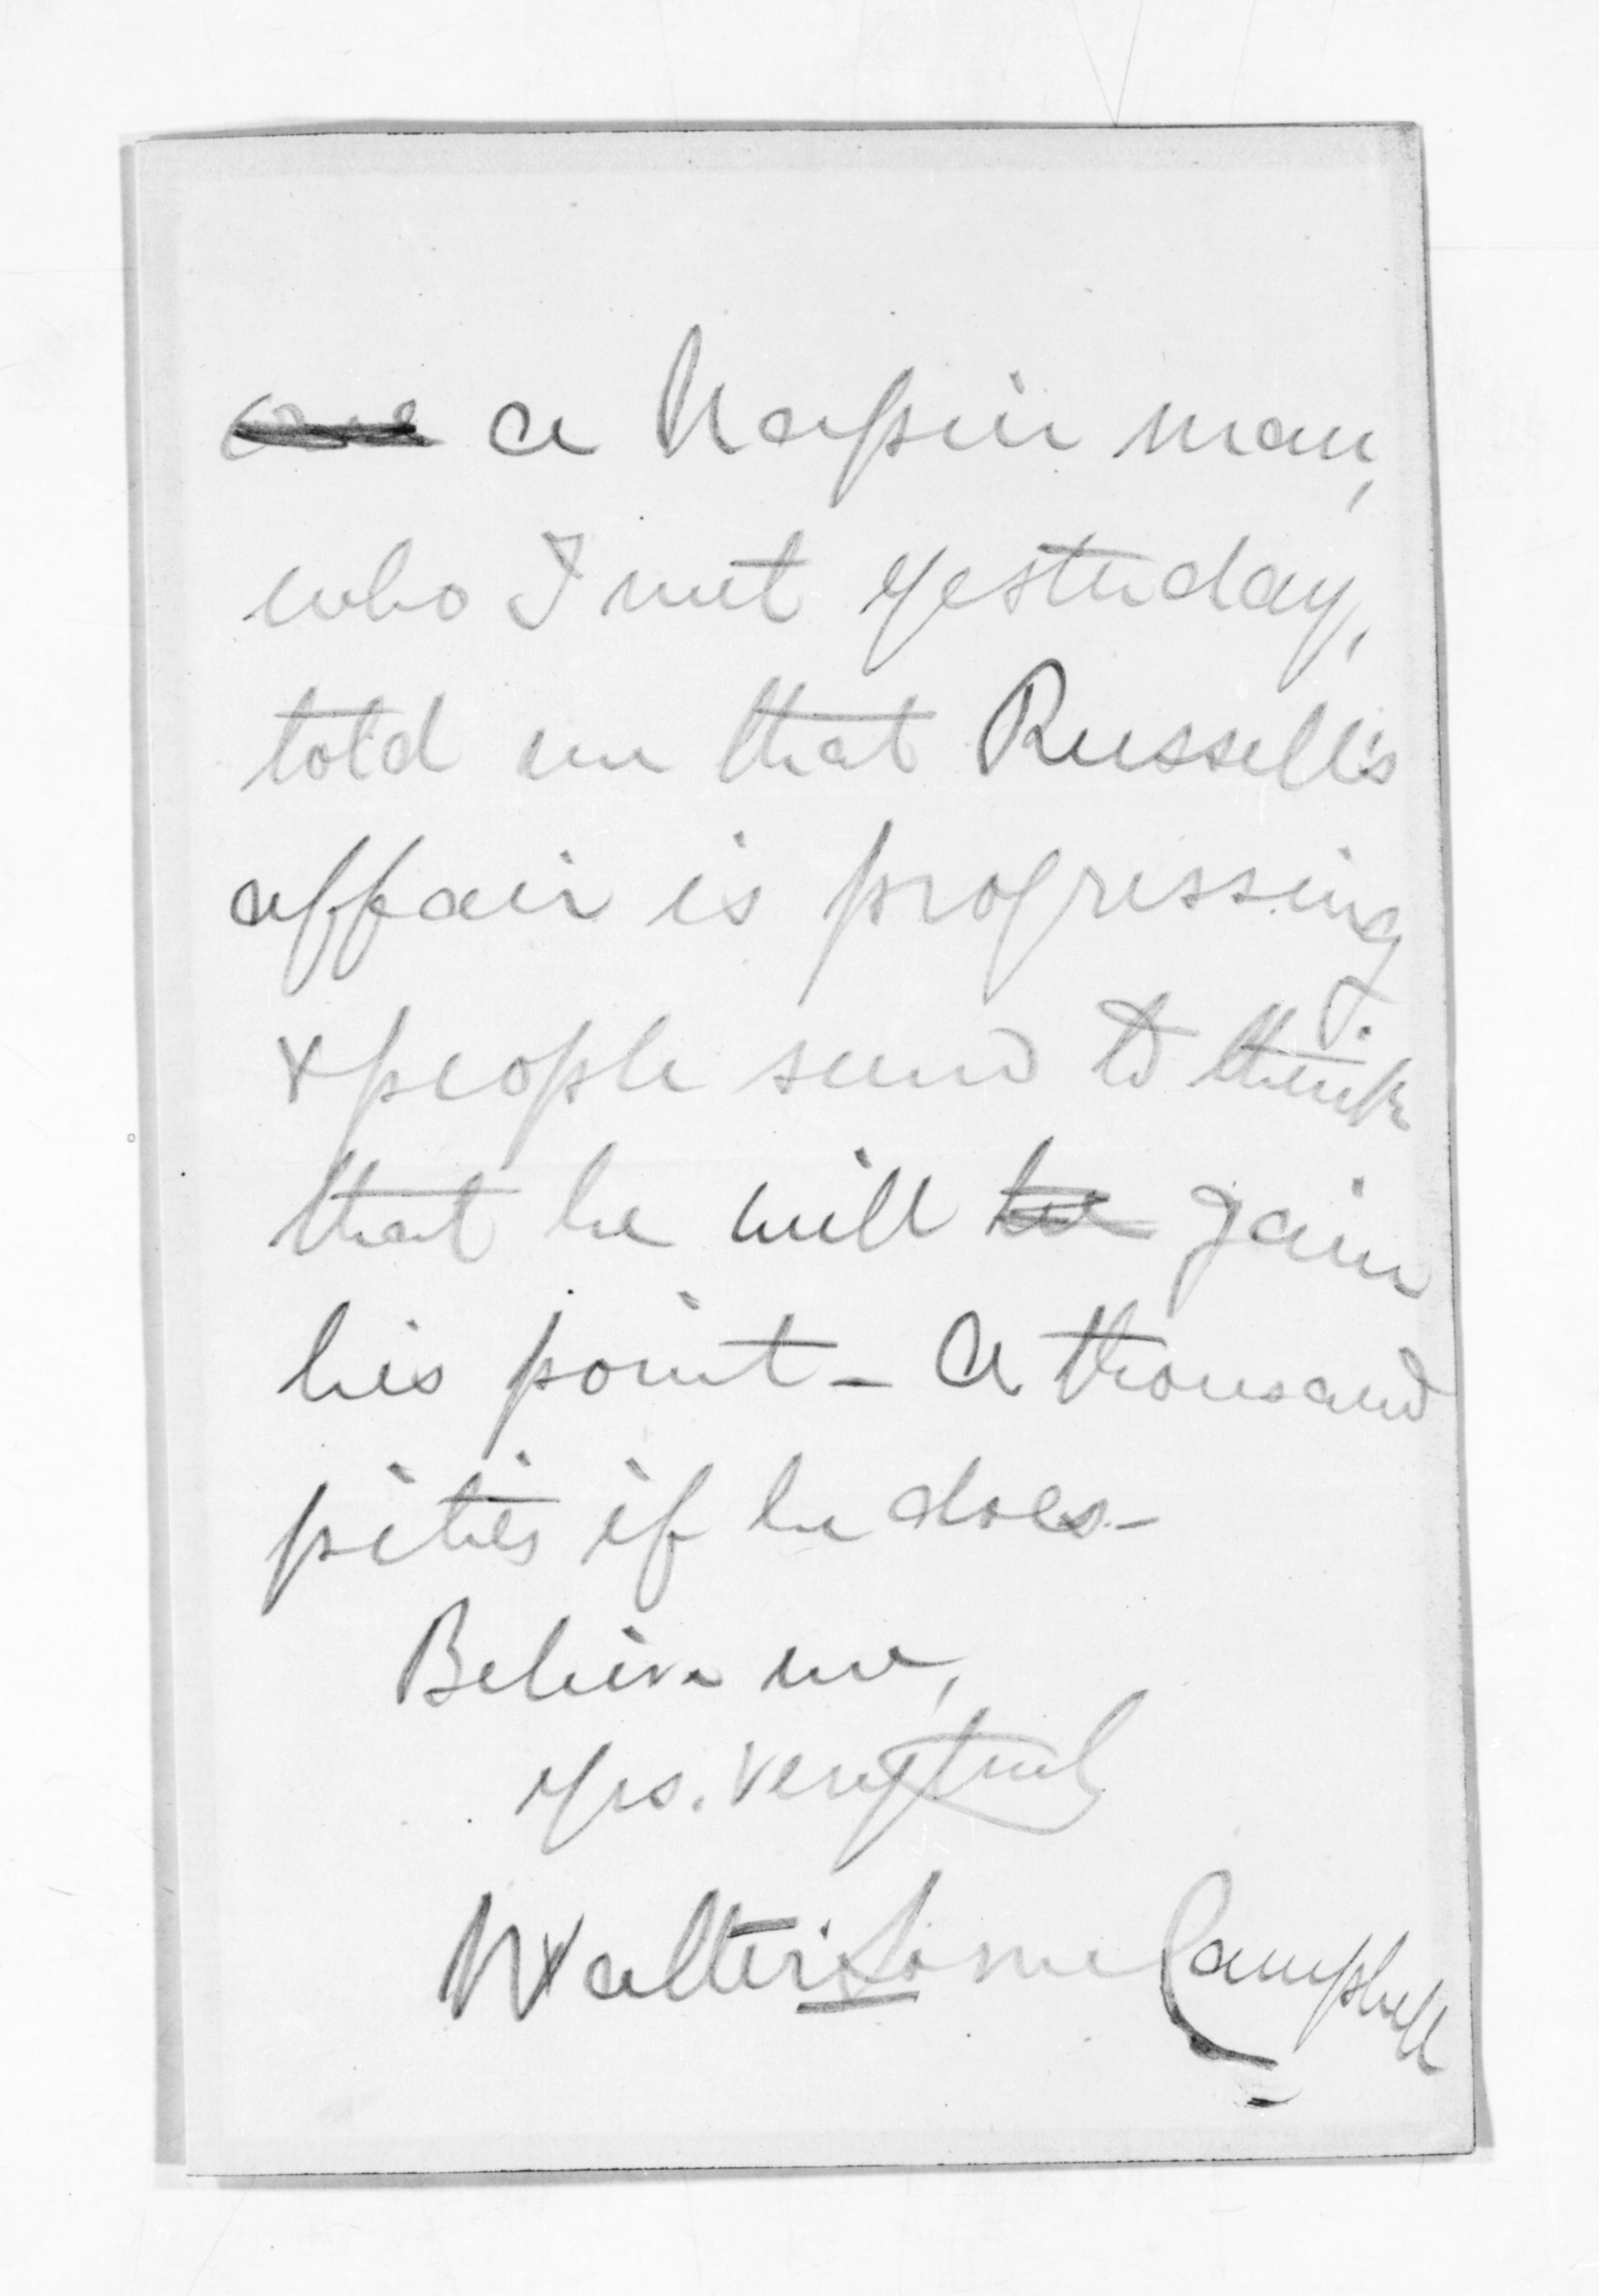 a Napier man,
who I met yesterday,
told me that Russell's
affair is progressing
& people seem to think
that he will be gain
his point - A thousand
pities if he does -
Believe me,
Yrs. very truly
Walter Lorne Campbell